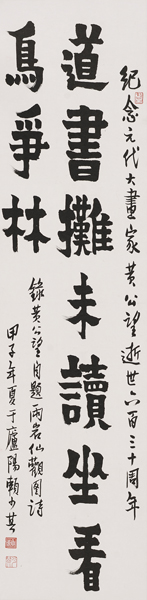 紀念元代大畫家黄公望逝世六百三十周年
道書攤未讀坐看
鳥爭林
錄黄公望自題兩岩仙觀圖詩
甲子年夏于廬陽賴少其